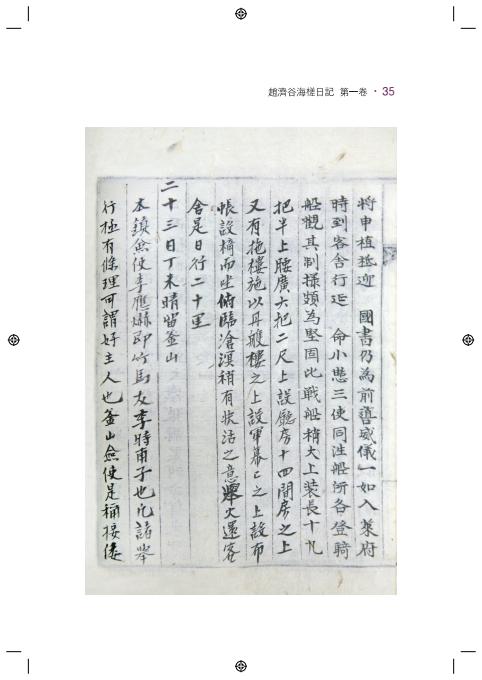 趙濟谷海槎日記 第一卷 · 35
將申植祗迎 國書乃為前導威儀一如入萊府
時到客舍行延 命小憩三使同往船所各登騎
船觀其制㨾頗為堅固比戦船稍大上裝長十九
把半上腰廣六把二尺上設廳房十四間房之上
又有拖樓施以丹雘樓之上設軍幕之上設布
帳設椅而坐俯臨滄溟稍有狀活之意舉火還客
舍是日行二十里
二十三日丁未晴留釜山
本鎮僉使李應爀即竹馬友李時雨子也凡諸舉
行極有條理可謂好主人也釜山僉使是稱接倭